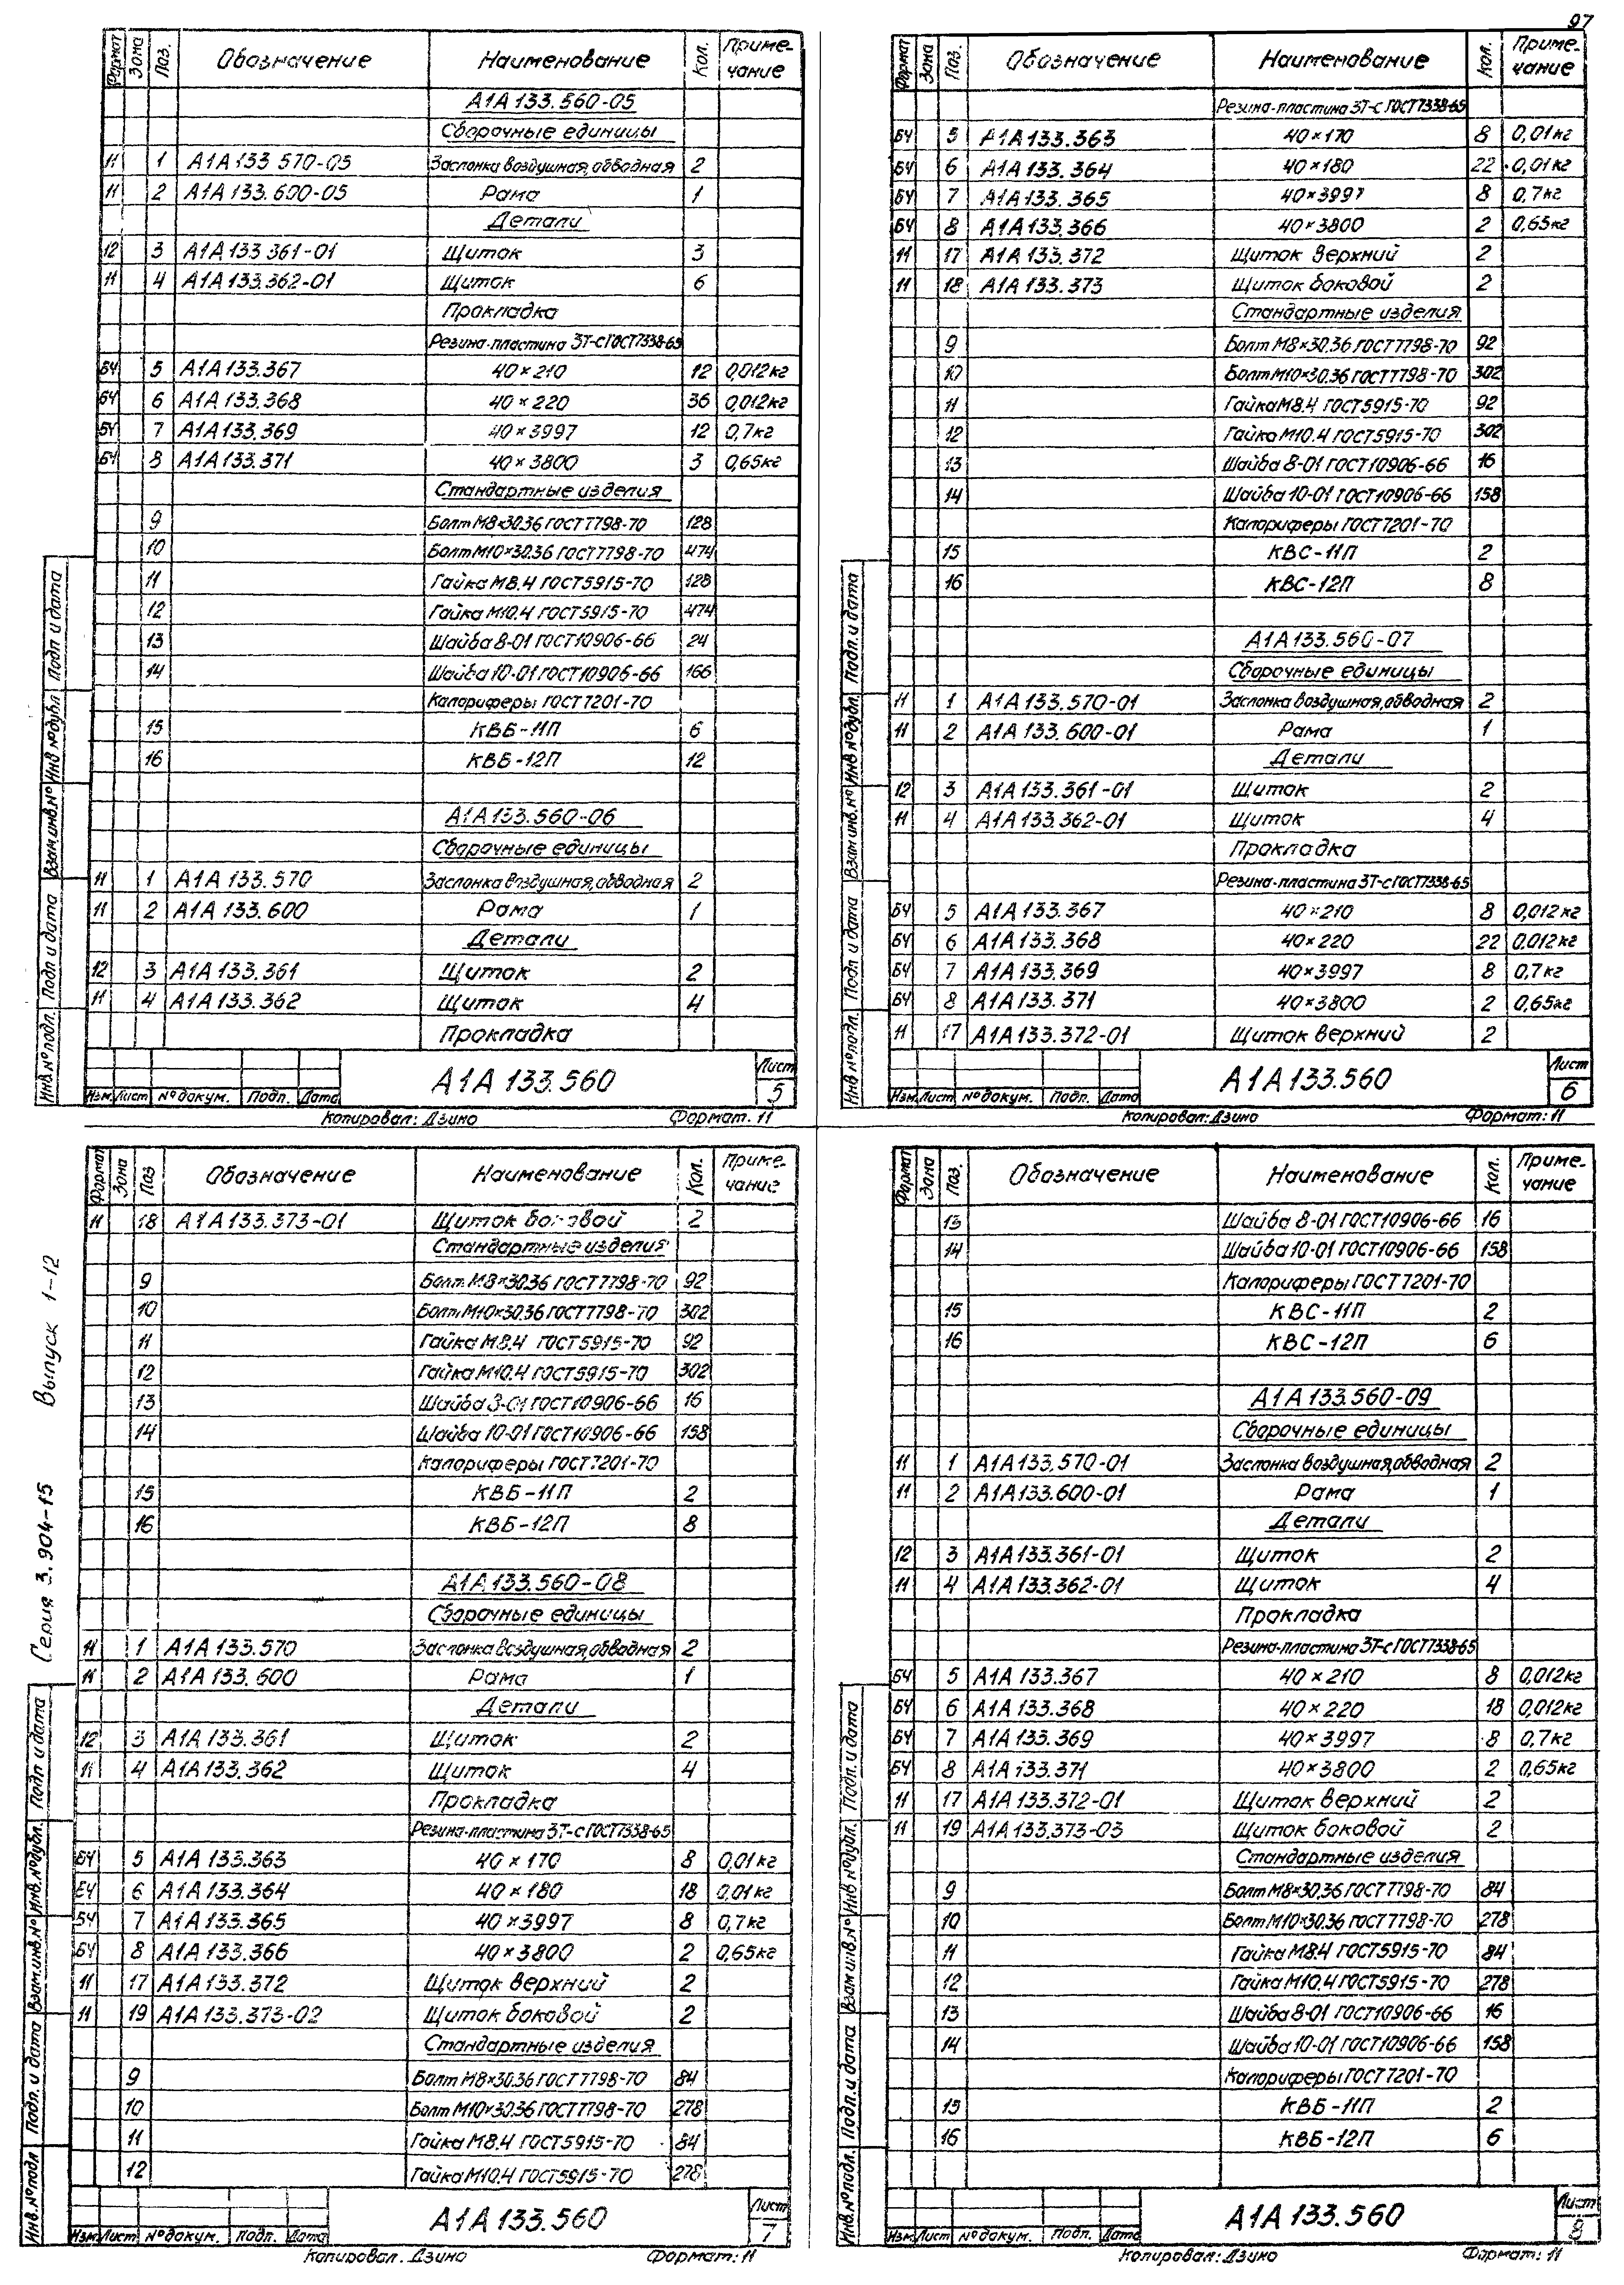 97
Формат Зона Поз. Обозначение Наименование Кол. Приме-чание
А1А 133.560-05
Сборочные единицы
11 1 А1А 133 570-05 Заслонка воздушная, обводная 2
11 2 А1А 133.600-05 Рама 1
Детали
12 3 А1А 133 361-01 Щиток 3
11 4 А1А 133.362-01 Щиток 6
Прокладка
Резина-пластина 3Т-с ГОСТ7338-65
БЧ 5 А1А 133.367 40×210 12 0,012кг
БЧ 6 А1А 133.368 40×220 36 0,012кг
БЧ 7 А1А 133.369 40×3997 12 0,7кг
БЧ 8 А1А 133.371 40×3800 3 0,65кг
Стандартные изделия
9 Болт М8×30.36 ГОСТ7798-70 128
10 Болт М10×30.36 ГОСТ7798-70 474
11 Гайка М8.4 ГОСТ5915-70 128
12 Гайка М10.4 ГОСТ5915-70 474
13 Шайба 8-01 ГОСТ10906-66 24
14 Шайба 10-01 ГОСТ10906-66 166
Калориферы ГОСТ7201-70
15 КВБ-11П 6
16 КВБ-12П 12
А1А 133.560-06
Сборочные единицы
11 1 А1А 133.570 Заслонка воздушная, обводная 2
11 2 А1А 133.600 Рама 1
Детали
12 3 А1А 133.361 Щиток 2
11 4 А1А 133.362 Щиток 4
Прокладка
Инв №подл. Подп и дата Взам.инв.№ Инв №дубл Подп и дата
Изм Лист №докум. Подп. Дата А1А 133.560 Лист 5
Копировал: Дзино Формат: 11
Формат Зона Поз. Обозначение Наименование Кол. Приме-чание
Резина-пластина 3Т-с ГОСТ7338-65
БЧ 5 А1А 133.363 40×170 8 0,01кг
БЧ 6 А1А 133.364 40×180 22 0,01кг
БЧ 7 А1А 133.365 40×3997 8 0,7кг
БЧ 8 А1А 133.366 40×3800 2 0,65кг
11 17 А1А 133.372 Щиток верхний 2
11 18 А1А 133.373 Щиток боковой 2
Стандартные изделия
9 Болт М8×30.36 ГОСТ7798-70 92
10 Болт М10×30.36 ГОСТ7798-70 302
11 Гайка М8.4 ГОСТ5915-70 92
12 Гайка М10.4 ГОСТ5915-70 302
13 Шайба 8-01 ГОСТ10906-66 16
14 Шайба 10-01 ГОСТ10906-66 158
Калориферы ГОСТ7201-70
15 КВС-11П 2
16 КВС-12П 8
А1А 133.560-07
Сборочные единицы
11 1 А1А 133.570-01 Заслонка воздушная, обводная 2
11 2 А1А 133.600-01 Рама 1
Детали
12 3 А1А 133.361-01 Щиток 2
11 4 А1А 133.362-01 Щиток 4
Прокладка
Резина-пластина 3Т-с ГОСТ7338-65
БЧ 5 А1А 133.367 40×210 8 0,012кг
БЧ 6 А1А 133.368 40×220 22 0.012кг
БЧ 7 А1А 133.369 40×3997 8 0,7кг
БЧ 8 А1А 133.371 40×3800 2 0,65кг
11 17 А1А 133.372-01 Щиток верхний 2
Инв №подл. Подп и дата Взам инв.№ Инв №дубл. Подп. и дата
Изм Лист №докум. Подп. Дата А1А 133.560 Лист 6
Копировал: Дзино Формат: 11
Серия 3.904-15 Выпуск 1-12
Формат Зона Поз Обозначение Наименование Кол. Приме-чание
11 18 А1А 133.373-01 Щиток боковой 2
Стандартные изделия
9 Болт М8×30.36 ГОСТ7798-70 92
10 Болт М10×30.36 ГОСТ7798-70 302
11 Гайка М8.4 ГОСТ5915-70 92
12 Гайка М10.4 ГОСТ5915-70 302
13 Шайба 8-01 ГОСТ10906-66 16
14 Шайба 10-01 ГОСТ10906-66 158
Калориферы ГОСТ7201-70
15 КВБ-11П 2
16 КВБ-12П 8
А1А 133.560-08
Сборочные единицы
11 1 А1А 133.570 Заслонка воздушная, обводная 2
11 2 А1А 133.600 Рама 1
Детали
12 3 А1А 133.361 Щиток 2
11 4 А1А 133.362 Щиток 4
Прокладка
Резина-пластина 3Т-с ГОСТ7338-65
БЧ 5 А1А 133.363 40×170 8 0,01кг
БЧ 6 А1А 133.364 40×180 18 0,01кг
БЧ 7 А1А 133.365 40×3997 8 0,7кг
БЧ 8 А1А 133.366 40×3800 2 0,65кг
11 17 А1А 133.372 Щиток верхний 2
11 19 А1А 133.373-02 Щиток боковой 2
Стандартные изделия
9 Болт М8×30.36 ГОСТ7798-70 84
10 Болт М10×30.36 ГОСТ7798-70 278
11 Гайка М8.4 ГОСТ5915-70 84
12 Гайка М10.4 ГОСТ5915-70 278
Инв.№подл Подп. и дата Взам.инв.№ Инв.№дубл. Подп и дата
Изм Лист №докум. Подп. Дата А1А 133.560 Лист 7
Копировал. Дзино Формат: 11
Формат Зона Поз. Обозначение Наименование Кол. Приме-чание
13 Шайба 8-01 ГОСТ10906-66 16
14 Шайба 10-01 ГОСТ10906-66 158
Калориферы ГОСТ7201-70
15 КВС-11П 2
16 КВС-12П 6
А1А 133.560-09
Сборочные единицы
11 1 А1А 133.570-01 Заслонка воздушная, обводная 2
11 2 А1А 133.600-01 Рама 1
Детали
12 3 А1А 133.361-01 Щиток 2
11 4 А1А 133.362-01 Щиток 4
Прокладка
Резина-пластина 3Т-с ГОСТ7338-65
БЧ 5 А1А 133.367 40×210 8 0,012кг
БЧ 6 А1А 133.368 40×220 18 0,012кг
БЧ 7 А1А 133.369 40×3997 8 0,7кг
БЧ 8 А1А 133.371 40×3800 2 0,65кг
11 17 А1А 133.372-01 Щиток верхний 2
11 19 А1А 133.373-03 Щиток боковой 2
Стандартные изделия
9 Болт М8×30.36 ГОСТ7798-70 84
10 Болт М10×30.36 ГОСТ7798-70 278
11 Гайка М8.4 ГОСТ5915-70 84
12 Гайка М10.4 ГОСТ5915-70 278
13 Шайба 8-01 ГОСТ10906-66 16
14 Шайба 10-01 ГОСТ10906-66 158
Калориферы ГОСТ7201-70
15 КВБ-11П 2
16 КВБ-12П 6
Инв.№подл. Подп. и дата Взам инв.№ Инв №дубл. Подп. и дата
Изм Лист №докум. Подп. Дата А1А 133.560 Лист 8
Копировал: Дзино Формат: 11